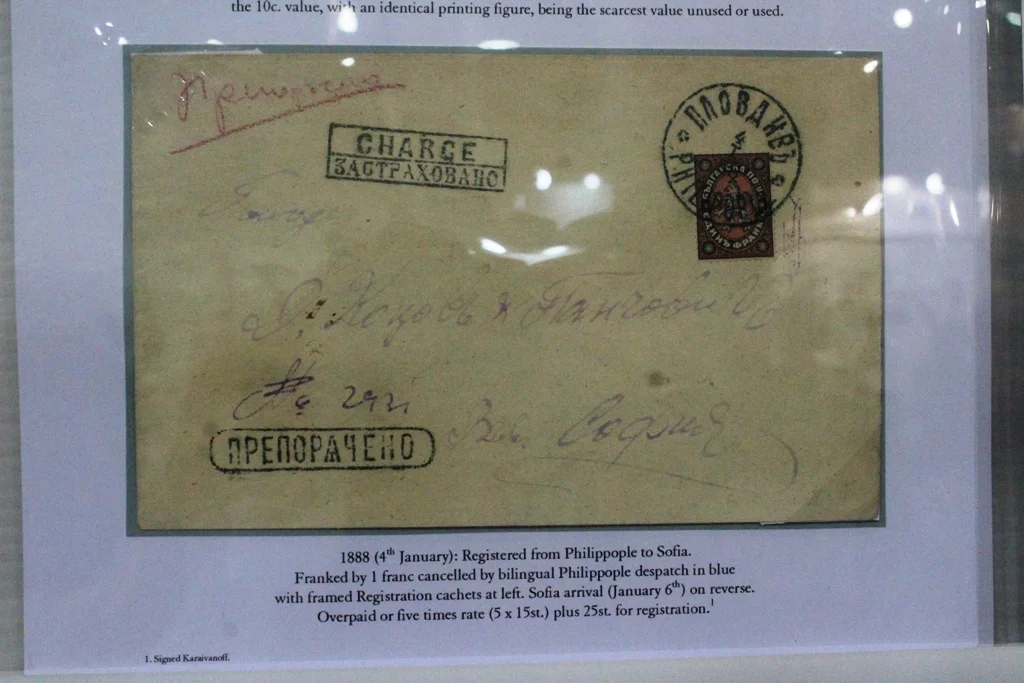 the 10c. value, with an identical printing figure, being the scarcest value unused or used.
CHARGE
ЗАСТРАХОВАНО
ПЛОВДИВЪ
БЪЛГАРСКА ПОЩА
ЕДИНЪ ФРАНК
№ 2921
ПРЕПОРѪЧЕНО
София
1888 (4th January): Registered from Philippople to Sofia.
Franked by 1 franc cancelled by bilingual Philippople despatch in blue
with framed Registration cachets at left. Sofia arrival (January 6th) on reverse.
Overpaid or five times rate (5 x 15st.) plus 25st. for registration.1
1. Signed Karaivanoff.